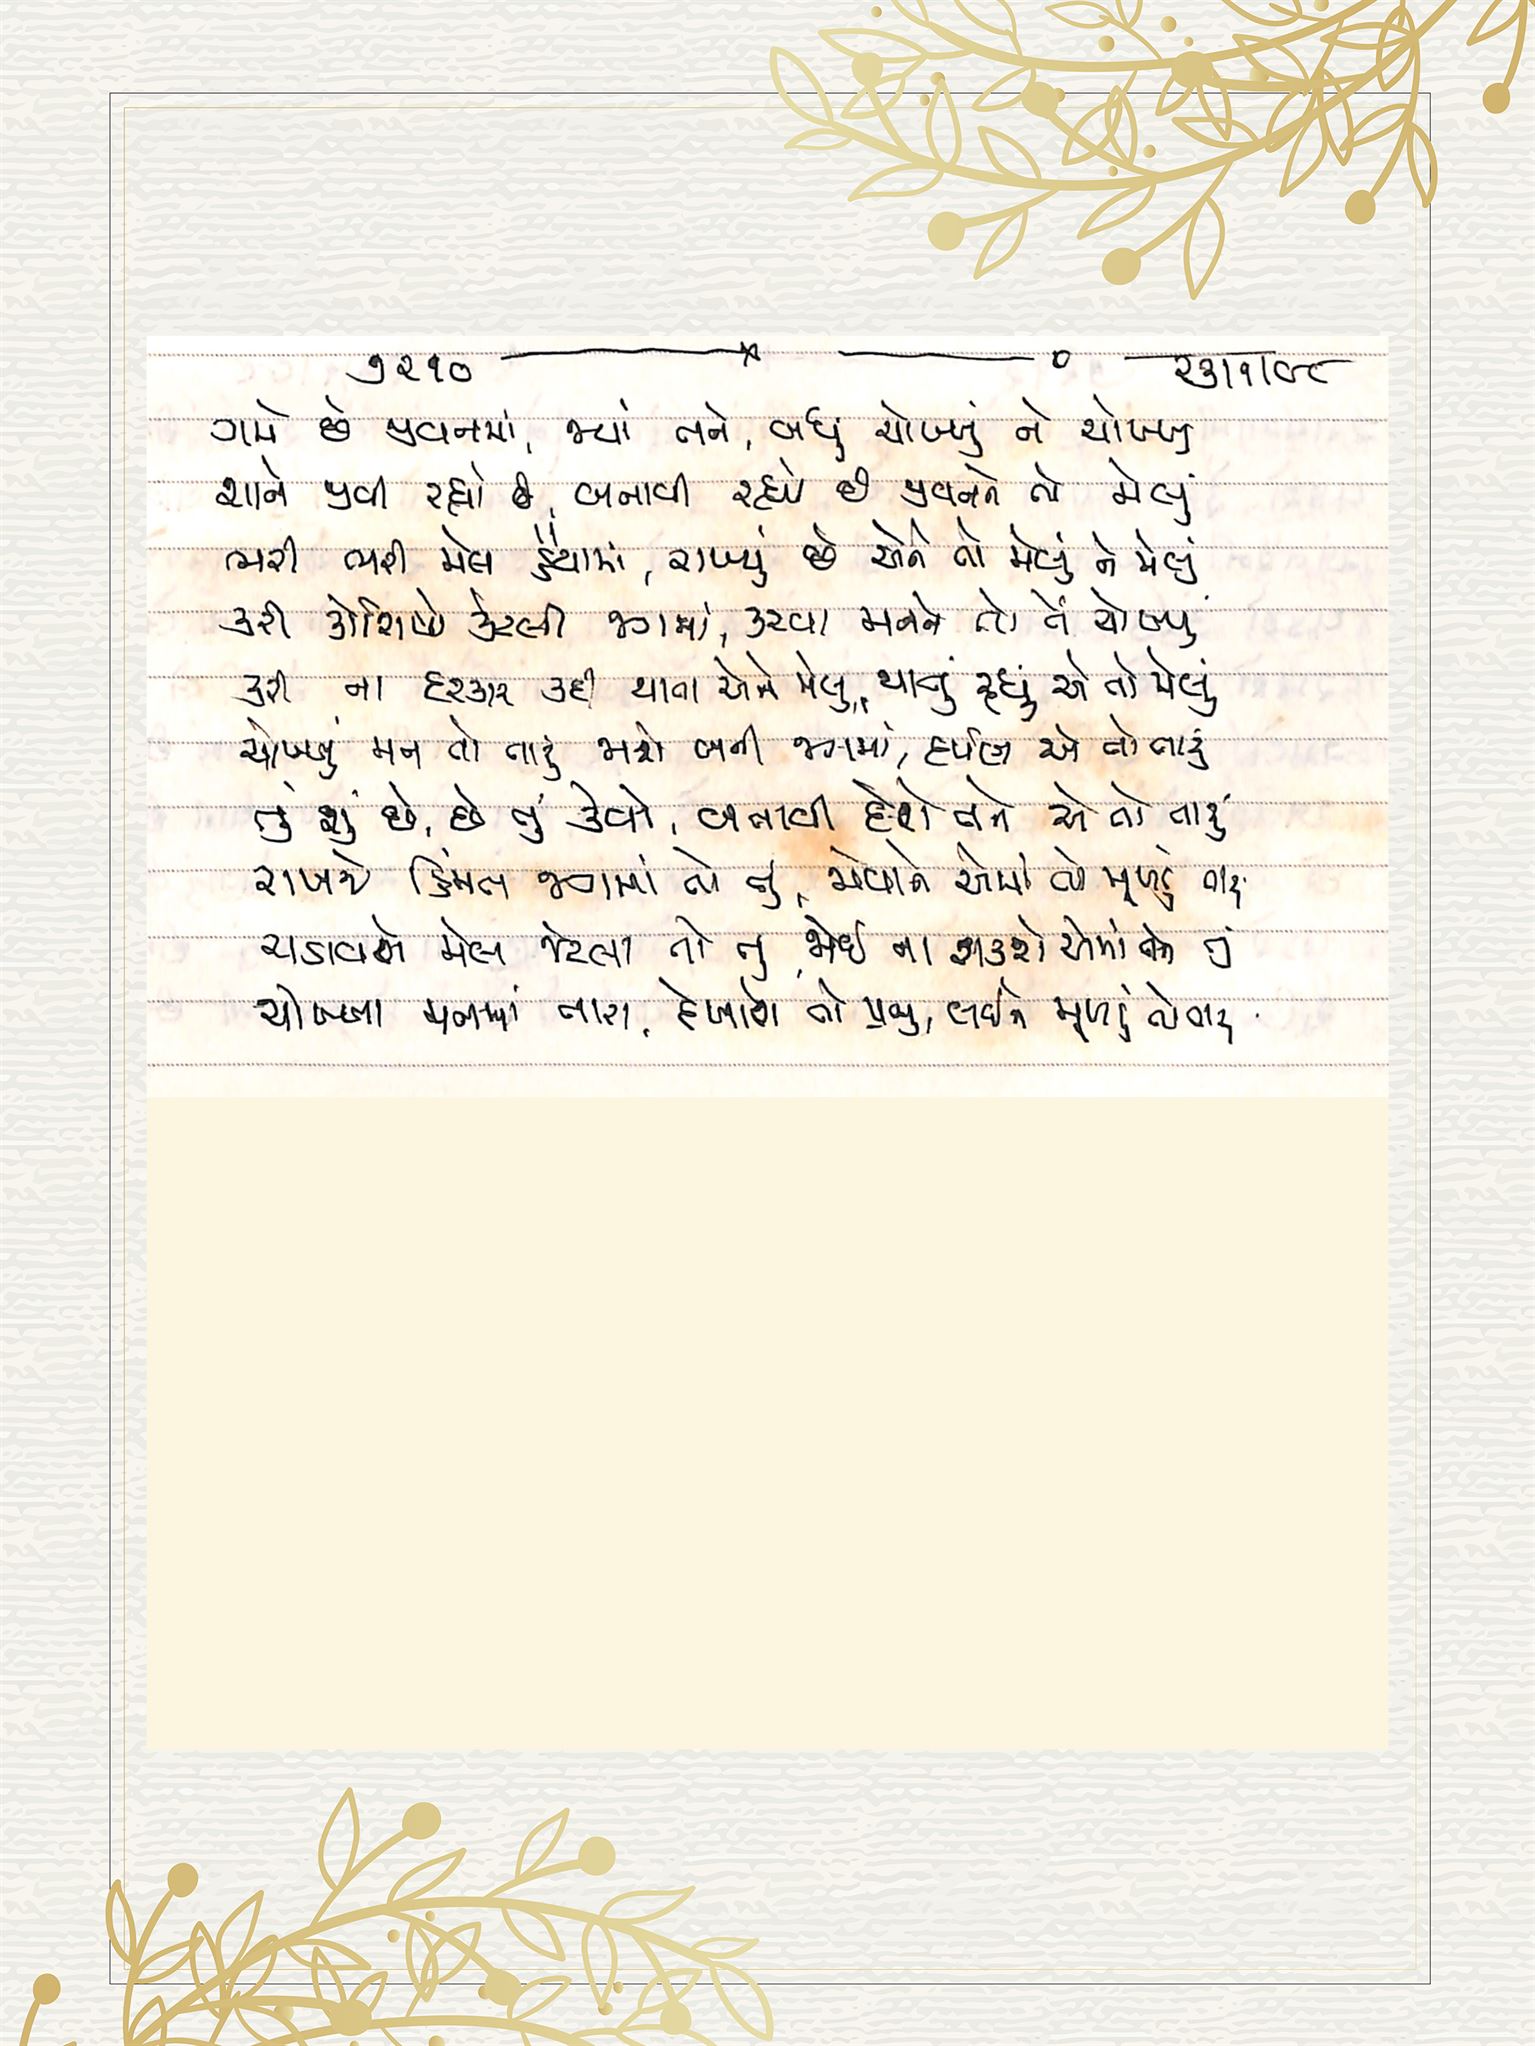 ૭૨૧૦ ૨૩/૧/૯૮
ગમે છે જીવનમાં, જ્યાં તને, બધું ચોખ્ખું ને ચોખ્ખુ
શાને જીવી રહ્યો છે, બનાવી રહ્યો છે જીવનને તો મેલું
ભરી ભરી મેલ હૈયામાં, રાખ્યું છે એને તો મેલું ને મેલું
કરી કોશિષો કેટલી જગમાં, કરવા મનને તો તેં ચોખ્ખુ
કરી ના દરકાર કદી થાતા એને મેલુ, થાતું રહ્યું એ તો મેલું
ચોખ્ખું મન તો તારું જાશે બની જગમાં, દર્પણ એ તો તારું
તું શું છે, છે તું કેવો, બનાવી દેશે તને એ તો તારું
રાખજે કિંમત જગમાં તો તુ, મેલોને એમાં તો મૂખડું તારુ
ચડાવશે મેલ જેટલા તો તુ, જોઈ ના શકશે એમાં તને તું
ચોખ્ખા મનમાં તારા, દેખાશે તો પ્રભુ, લઈને મૂખડું તો તારુ